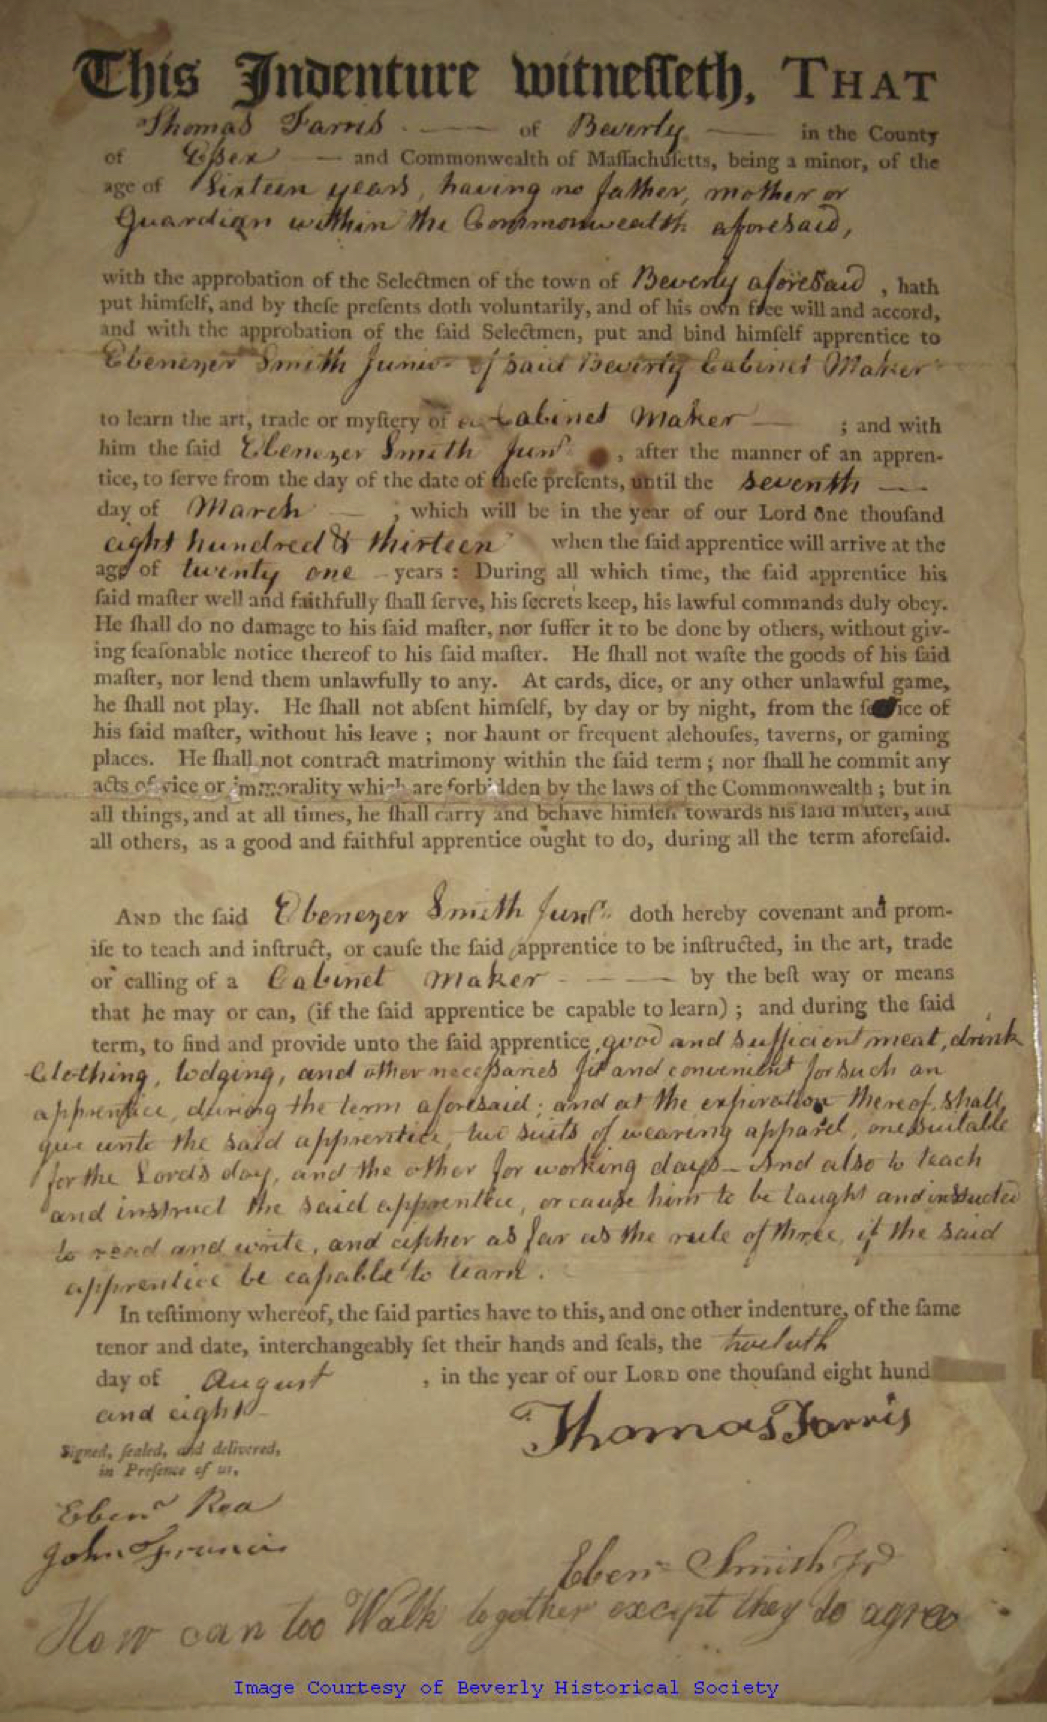 This Indenture witneſſeth, THAT
Thomas Farris — of Beverly — in the County
of Eſsex — and Commonwealth of Maſſachuſetts, being a minor, of the
age of Sixteen years, having no father, mother or
Guardian within the Commonwealth aforesaid,
with the approbation of the Selectmen of the town of Beverly aforesaid , hath
put himſelf, and by theſe preſents doth voluntarily, and of his own free will and accord,
and with the approbation of the ſaid Selectmen, put and bind himſelf apprentice to
Ebenezer Smith Junior of said Beverly Cabinet Maker
to learn the art, trade or myſtery of a Cabinet Maker — ; and with
him the ſaid Ebenezer Smith Junr. , after the manner of an appren-
tice, to ſerve from the day of the date of theſe preſents, until the seventh —
day of March — ; which will be in the year of our Lord one thouſand
eight hundred & thirteen when the ſaid apprentice will arrive at the
age of twenty one - years : During all which time, the ſaid apprentice his
ſaid maſter well and faithfully ſhall ſerve, his ſecrets keep, his lawful commands duly obey.
He ſhall do no damage to his ſaid maſter, nor ſuffer it to be done by others, without giv-
ing ſeaſonable notice thereof to his ſaid maſter. He ſhall not waſte the goods of his ſaid
maſter, nor lend them unlawfully to any. At cards, dice, or any other unlawful game,
he ſhall not play. He ſhall not abſent himſelf, by day or by night, from the ſervice of
his ſaid maſter, without his leave ; nor haunt or frequent alehouſes, taverns, or gaming
places. He ſhall not contract matrimony within the ſaid term ; nor ſhall he commit any
acts of vice or immorality which are forbidden by the laws of the Commonwealth ; but in
all things, and at all times, he ſhall carry and behave himſelf towards his ſaid maſter, and
all others, as a good and faithful apprentice ought to do, during all the term aforeſaid.
AND the ſaid Ebenezer Smith Junr. doth hereby covenant and prom-
iſe to teach and inſtruct, or cauſe the ſaid apprentice to be inſtructed, in the art, trade
or calling of a Cabinet Maker - — — by the beſt way or means
that he may or can, (if the ſaid apprentice be capable to learn) ; and during the ſaid
term, to find and provide unto the ſaid apprentice, good and sufficient meat, drink
Clothing, lodging, and other neceſsaries fit and convenient for such an
apprentice, during the term aforesaid; and at the expiration thereof, shall
give unto the said apprentice, two suits of wearing apparel, one suitable
for the Lord's day, and the other for working days - And also to teach
and instruct the said apprentice, or cause him to be taught and instructed
to read and write, and cipher as far as the rule of three, if the said
apprentice be capable to learn.
In teſtimony whereof, the ſaid parties have to this, and one other indenture, of the ſame
tenor and date, interchangeably ſet their hands and ſeals, the twelvth
day of August , in the year of our LORD one thouſand eight hund
and eight -
Thomas Farris
Signed, ſealed, and delivered,
in Preſence of us,
Ebenr Rea
John Francis
Eben Smith Jr
How can too Walk together except they do agree
Image Courtesy of Beverly Historical Society